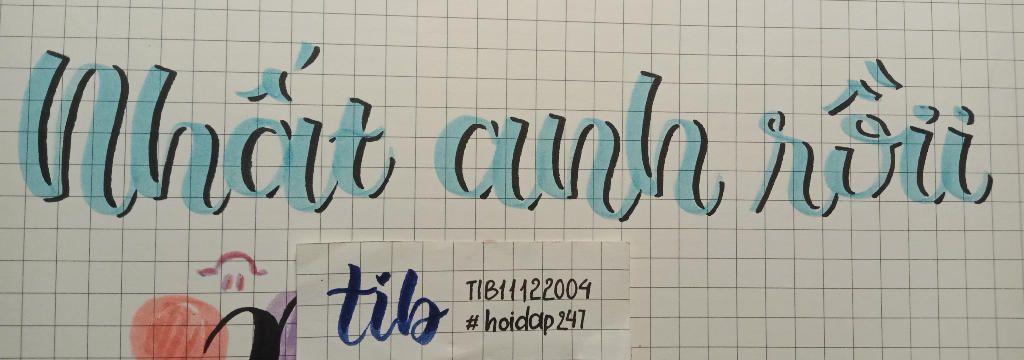 Nhất anh rồii
tib
TIB11122004
#hoidap247